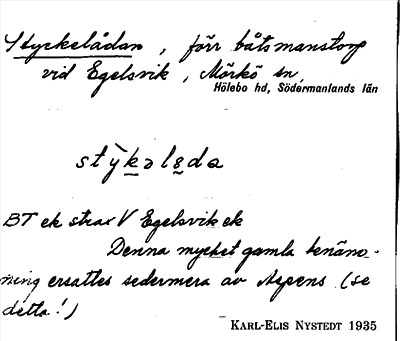 Styckelådan, förr båtsmanstorp
vid Egelsvik, Mörkö sn,
Hölebo hd, Södermanlands län
stỳkəlåda
BT ek strax V Egelsvik ek
Denna mycket gamla benäm-
ning ersattes sedermera av Aspens (se
detta!)
KARL-ELIS NYSTEDT 1935